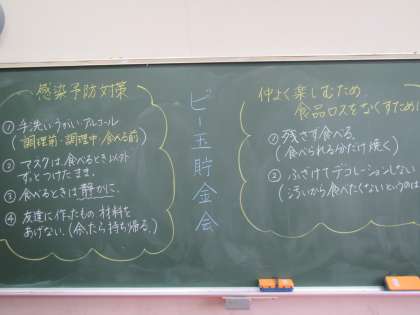 感染予防対策
① 手洗い・うがい・アルコール
(調理前・調理中・食べる前)
② マスクは食べるとき以外
ずっとつけたまま。
③ 食べるときは静かに。
④ 友達に作ったもの 材料を
あげない。(余ったら持ち帰る。)
ビー玉貯金会
仲よく楽しむため、
食品ロスをなくすため
① 残さず食べる。
(食べられる分だけ焼く)
② ふざけてデコレーションしない
(汚いから食べたくないというのは